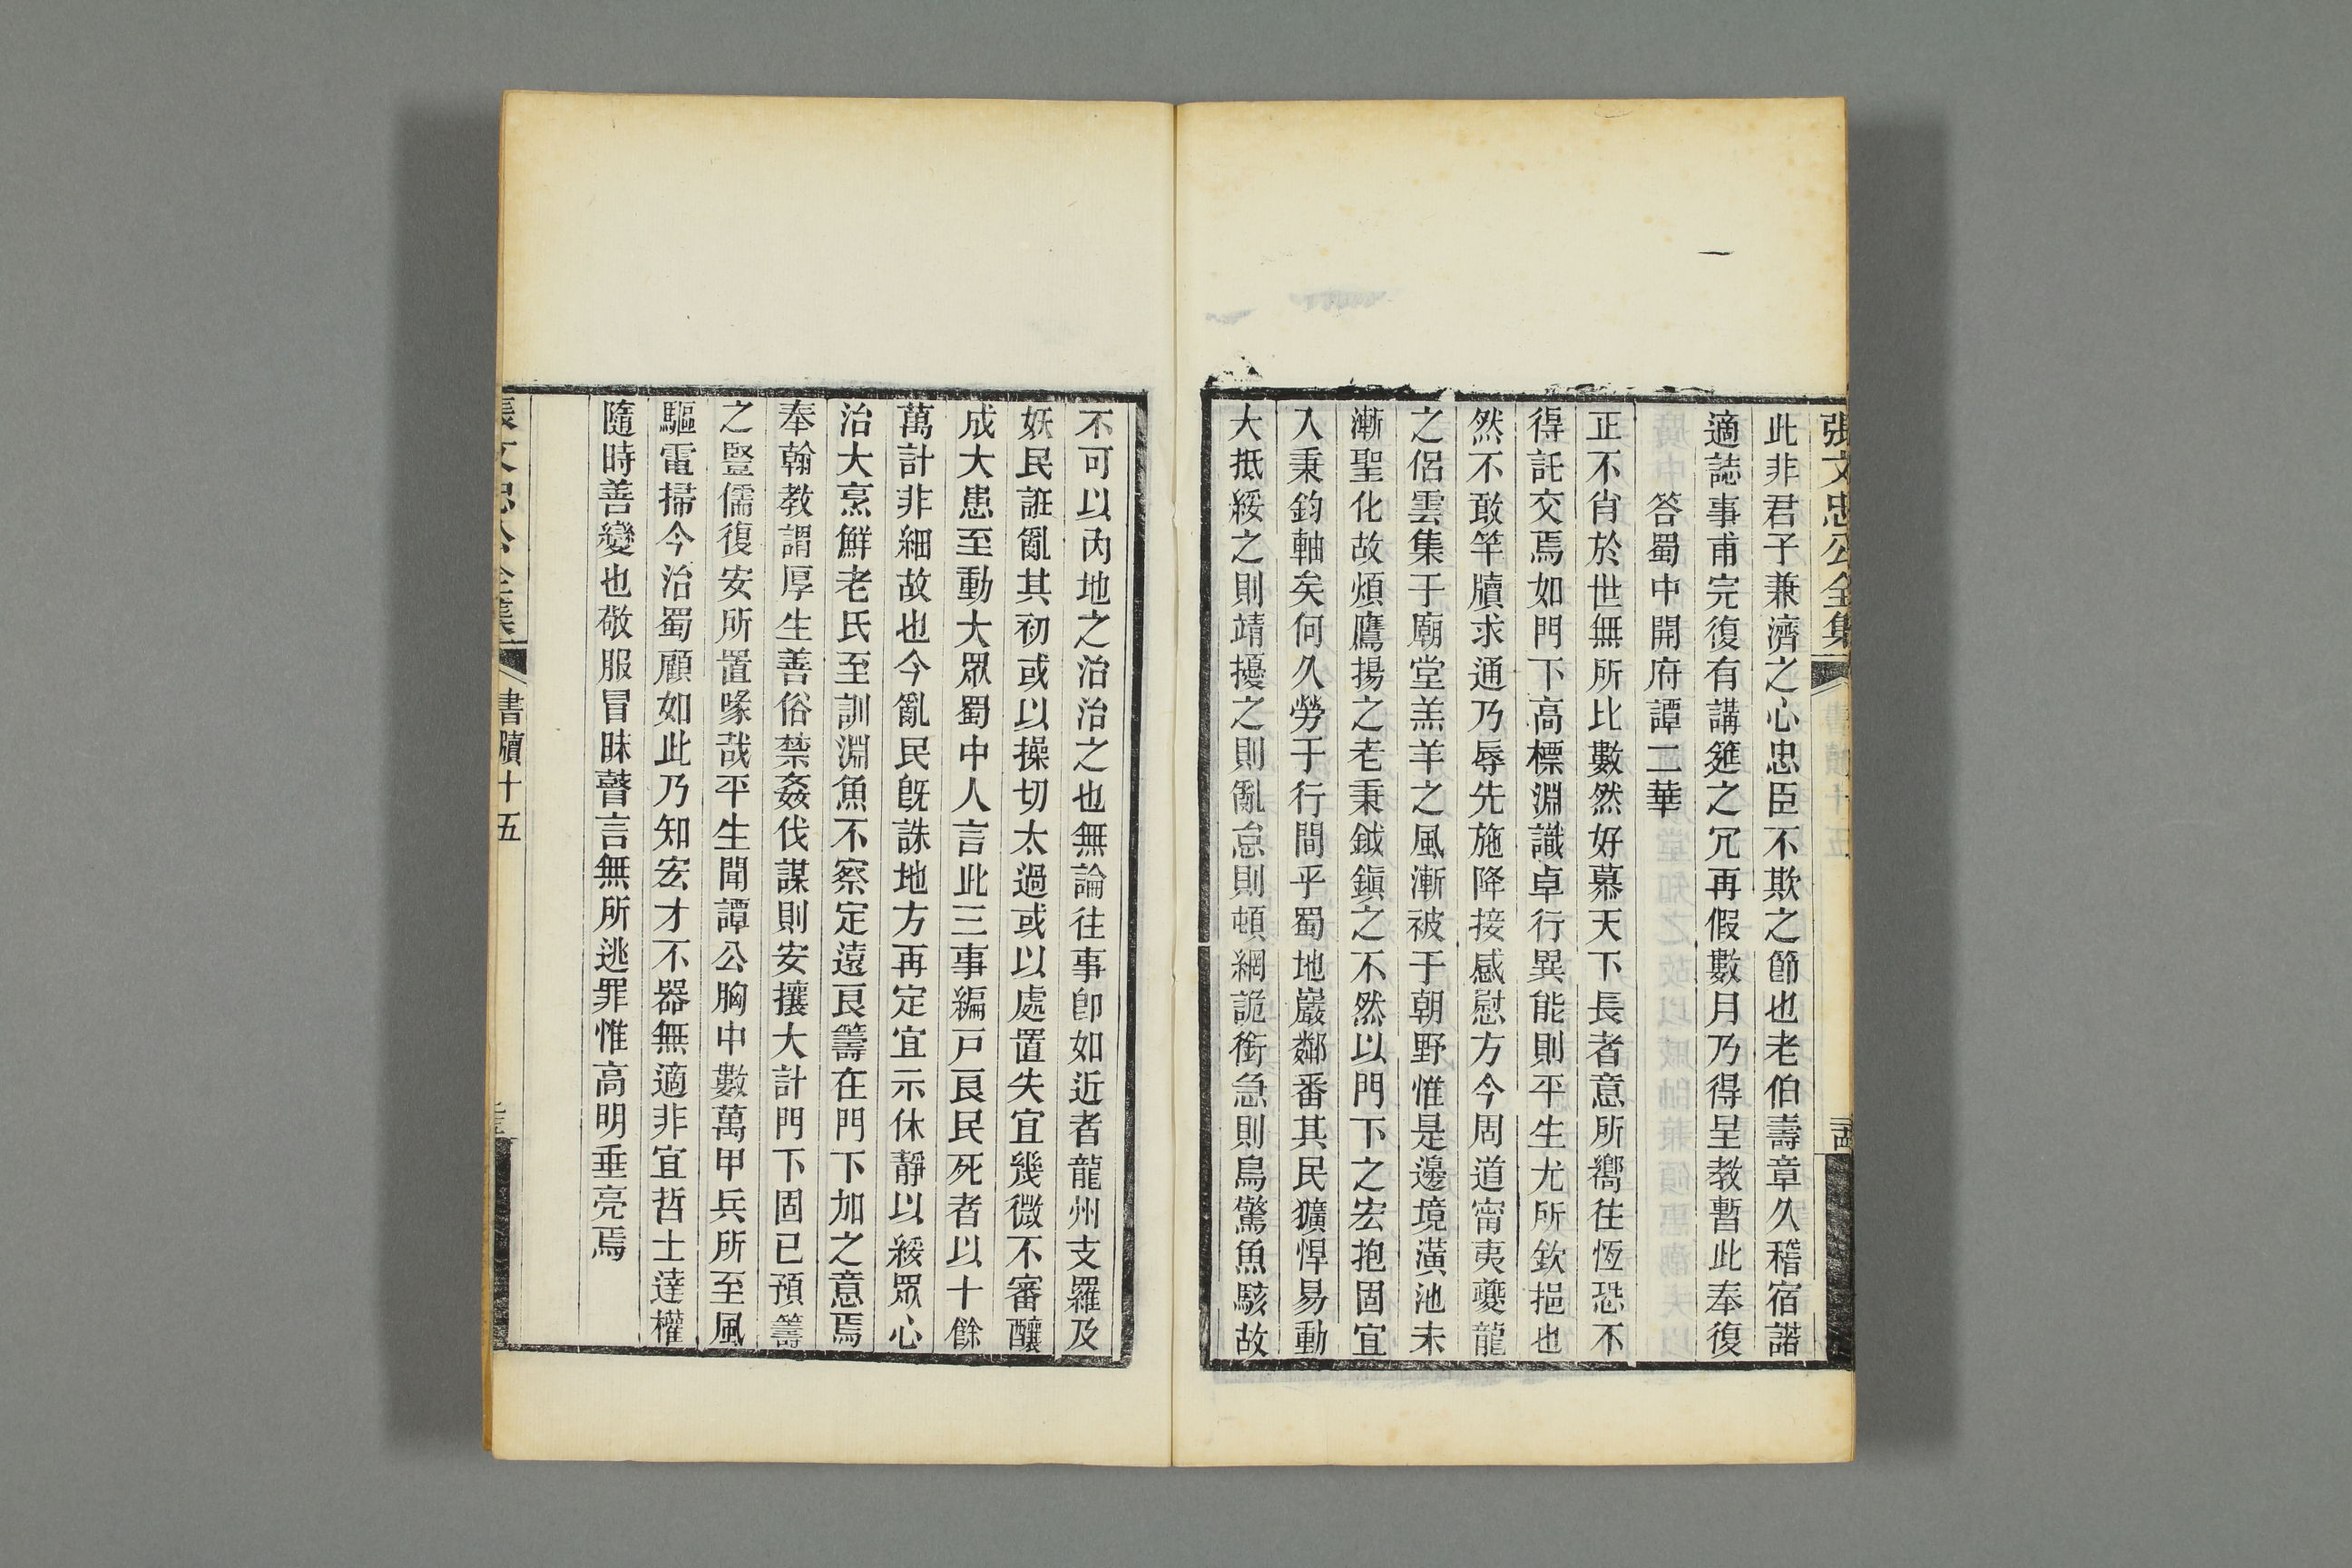 張文忠公全集
此非君子兼濟之心忠臣不欺之節也老伯壽章久稽宿諾
適誌事甫完復有講筵之冗再假數月乃得呈教暫此奉復
答蜀中開府譚二華
正不肖於世無所比數然好慕天下長者意所嚮往恆恐不
得託交焉如門下高標淵識卓行異能則平生尤所欽挹也
然不敢竿牘求通乃辱先施降接感慰方今周道甯夷夔龍
之侶雲集于廟堂羔羊之風漸被于朝野惟是邊境潢池未
漸聖化故煩鷹揚之老秉鉞鎮之不然以門下之宏抱固宜
入秉鈞軸矣何久勞于行間乎蜀地巖鄰番其民獷悍易動
大抵綏之則靖擾之則亂怠則頓綱詭銜急則鳥驚魚駭故
不可以內地之治治之也無論往事卽如近者龍州支羅及
妖民誑亂其初或以操切太過或以處置失宜幾微不審釀
成大患至動大眾蜀中人言此三事編戸良民死者以十餘
萬計非細故也今亂民旣誅地方再定宜示休靜以綏眾心
治大烹鮮老氏至訓淵魚不察定遠良籌在門下加之意焉
奉翰教謂厚生善俗禁姦伐謀則安攘大計門下固已預籌
之豎儒復安所置喙哉平生聞譚公胸中數萬甲兵所至風
驅電掃今治蜀顧如此乃知宏才不器無適非宜哲士達權
隨時善變也敬服冒昧瞽言無所逃罪惟高明垂亮焉
張文忠公全集
書牘十五